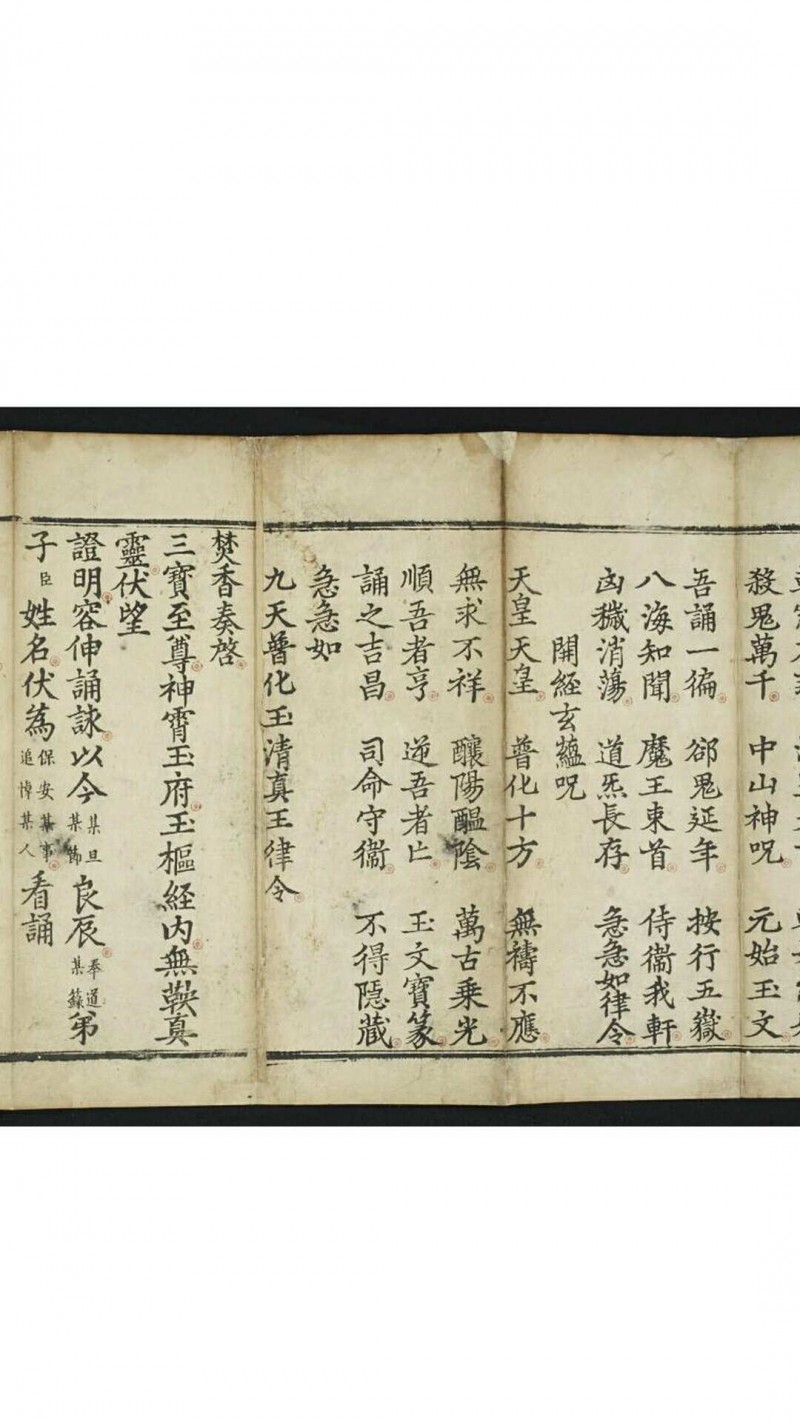 殺鬼萬千 中山神呪 元始玉文
吾誦一徧 郤鬼延年 按行五嶽
八海知聞 魔王束首 侍衞我軒
凶穢消蕩 道炁長存 急急如律令
開經玄蘊呪
天皇天皇 普化十方 無禱不應
無求不祥 釀陽醖陰 萬古乗光
順吾者亨 逆吾者亡 玉文寶篆
誦之吉昌 司命守衞 不得隱藏
急急如
九天普化玉清真王律令
焚香奏啓
三寶至尊神霄玉府玉樞経内無鞅真
靈伏望
證明容伸誦詠以今某旦某節良辰奉道某籙弟
子臣姓名伏為保安某事追悼某人看誦